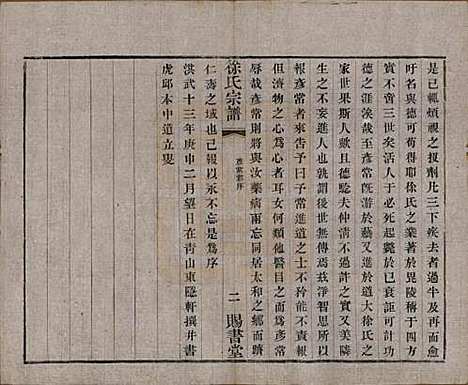 是已輒煩視之投劑凡三下疾去者過半及再而愈
吁名與德可苟得耶徐氏之業著於毘陵稱于四方
實不啻三世矣活人于必死起斃於已衰詎可計功
德之涯涘哉至彥常旣游於藝又進於道大徐氏之
家世果斯人歟且德騐夫仲清不過許之實又美隣
生之不妄進人也孰謂後世無傳焉茲淨智思所以
報彥常者來告予曰子常進道之士不矜能不計功
但濟物之心爲心者耳女何類他醫目之而爲彥常
辱哉彥常則將與汝藥病兩忘同居太和之鄉而躋
仁壽之域也何已報以永不忘是爲序
洪武十三年庚申二月望日在青山東隱軒撰幷書
虎邱本中道立叟
徐氏宗譜
彥常郡序
二
賜書堂